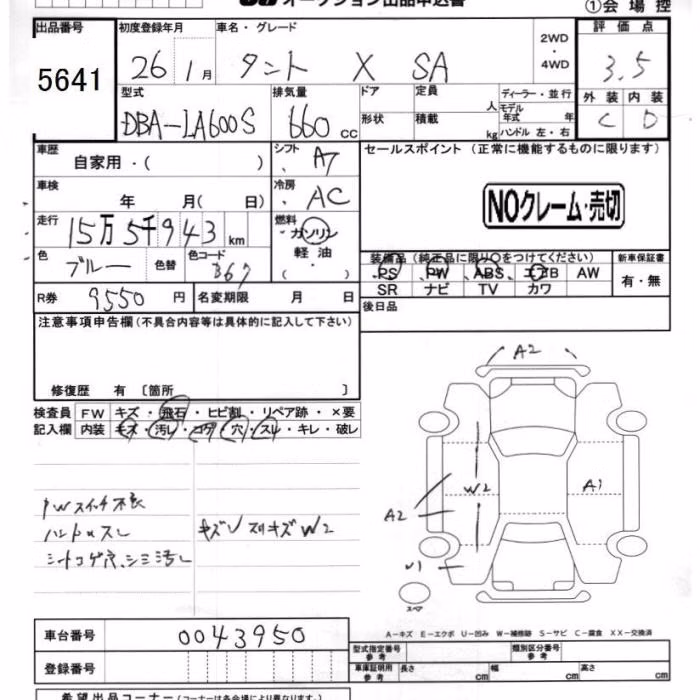 オークション出品申込書
①会場控
出品番号
5641
初度登録年月
26 1月
車名・グレード
タント X SA
2WD
・
4WD
評価点
3.5
型式
DBA-LA600S
排気量
660 cc
ドア
形状
定員
人
積載
kg
ディーラー・並行
モデル
年式 年
ハンドル 左・右
外装 内装
C D
車歴
自家用・( )
シフト
A7
セールスポイント (正常に機能するものに限ります)
車検
年 月( 日)
冷房
AC
NOクレーム・売切
走行
15万5千943 km
燃料
ガソリン
軽油
・( )
色
ブルー
色替
色コード
B67
装備品(純正品に限り○をつけてください)
新車保証書
PS PW ABS エアB AW
有・無
SR ナビ TV カワ
R券
9550 円
名変期限 月 日
後日品
注意事項申告欄(不具合内容等は具体的に記入して下さい)
修復歴 有 〔箇所 〕
検査員
記入欄
FW キズ・飛石・ヒビ割・リペア跡・×要
内装 キズ・汚レ・コゲ・穴・スレ・キレ・破レ
PWスイッチ不良
ハンドルスレ
シートコゲ穴、シミ汚レ
キズU スリキズW2
A2
W2
A1
A2
U1
スペア
A-キズ E-エクボ U-凹み W-補修跡 S-サビ C-腐食 XX-交換済
車台番号
0043950
登録番号
型式指定番号
参考
類別区分番号
参考
車庫証明用
参考
長さ cm
幅 cm
高さ cm
希望出品コーナー(コーナーは各会場により異なります。)